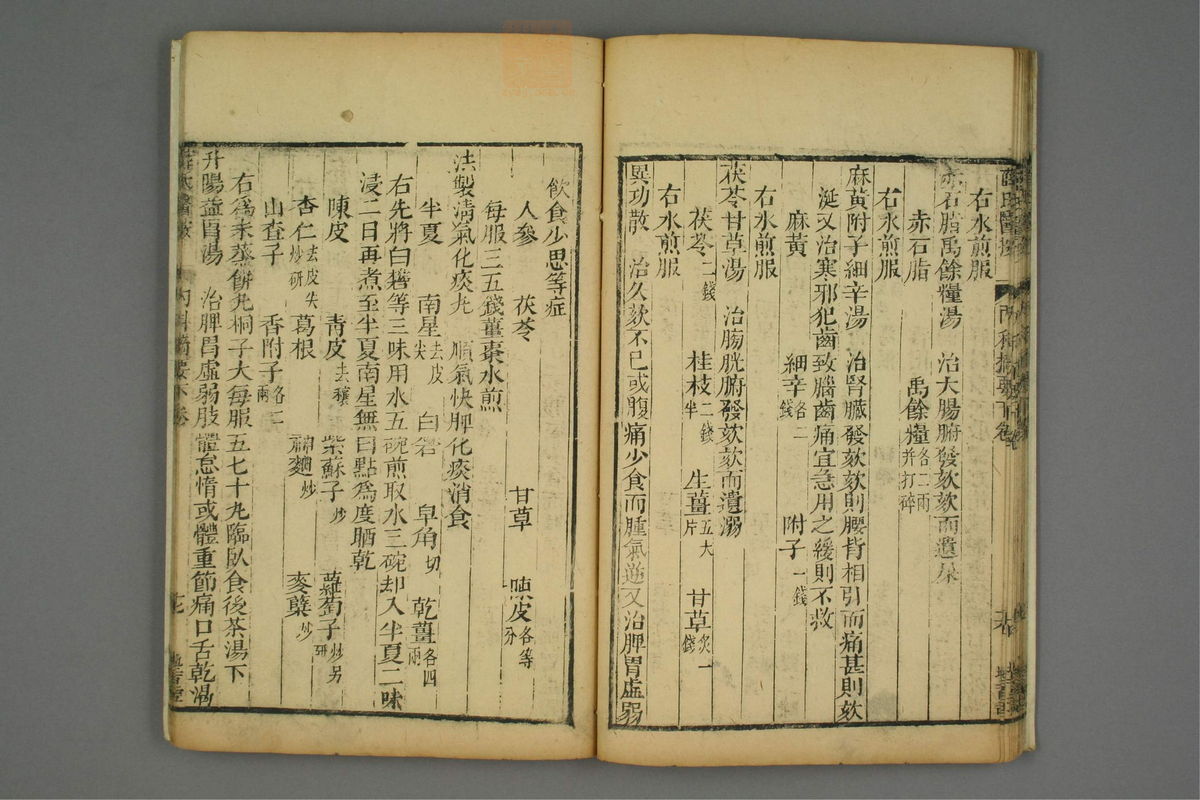 右水煎服
赤石脂禹餘糧湯　治大腸腑發欬欬而遺屎
赤石脂　禹餘糧各二兩并打碎
右水煎服
麻黄附子細辛湯　治腎臟發欬欬則腰背相引而痛甚則欬
涎又治寒邪犯齒致腦齒痛宜急用之緩則不救
麻黄　細辛各二錢　附子一錢
右水煎服
茯苓甘草湯　治膀胱腑發欬欬而遺溺
茯苓二錢　桂枝二錢半　生薑五大片　甘草炙一錢
右水煎服
異功散　治久欬不已或腹痛少食而腫氣逆又治脾胃虛弱
飲食少思等症
人參　茯苓　甘草　陳皮各等分
每服三五錢薑棗水煎
法製清氣化痰丸　順氣快脾化痰消食
半夏　南星去皮尖　白礬　皁角切　乾薑各四兩
右先將白礬等三味用水五碗煎取水三碗却入半夏二味
浸二日再煮至半夏南星無白點爲度晒乾
陳皮　青皮去穰　紫蘇子炒　蘿蔔子炒另研
杏仁去皮尖炒研　葛根　神麯炒　麥櫱炒
山查子　香附子各二兩
右爲末蒸餅丸桐子大每服五七十丸臨臥食後茶湯下
升陽益胃湯　治脾胃虛弱肢體怠惰或體重節痛口舌乾渴